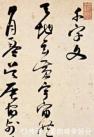 千字文
天地玄黄宇宙洪
日月盈昃辰宿列